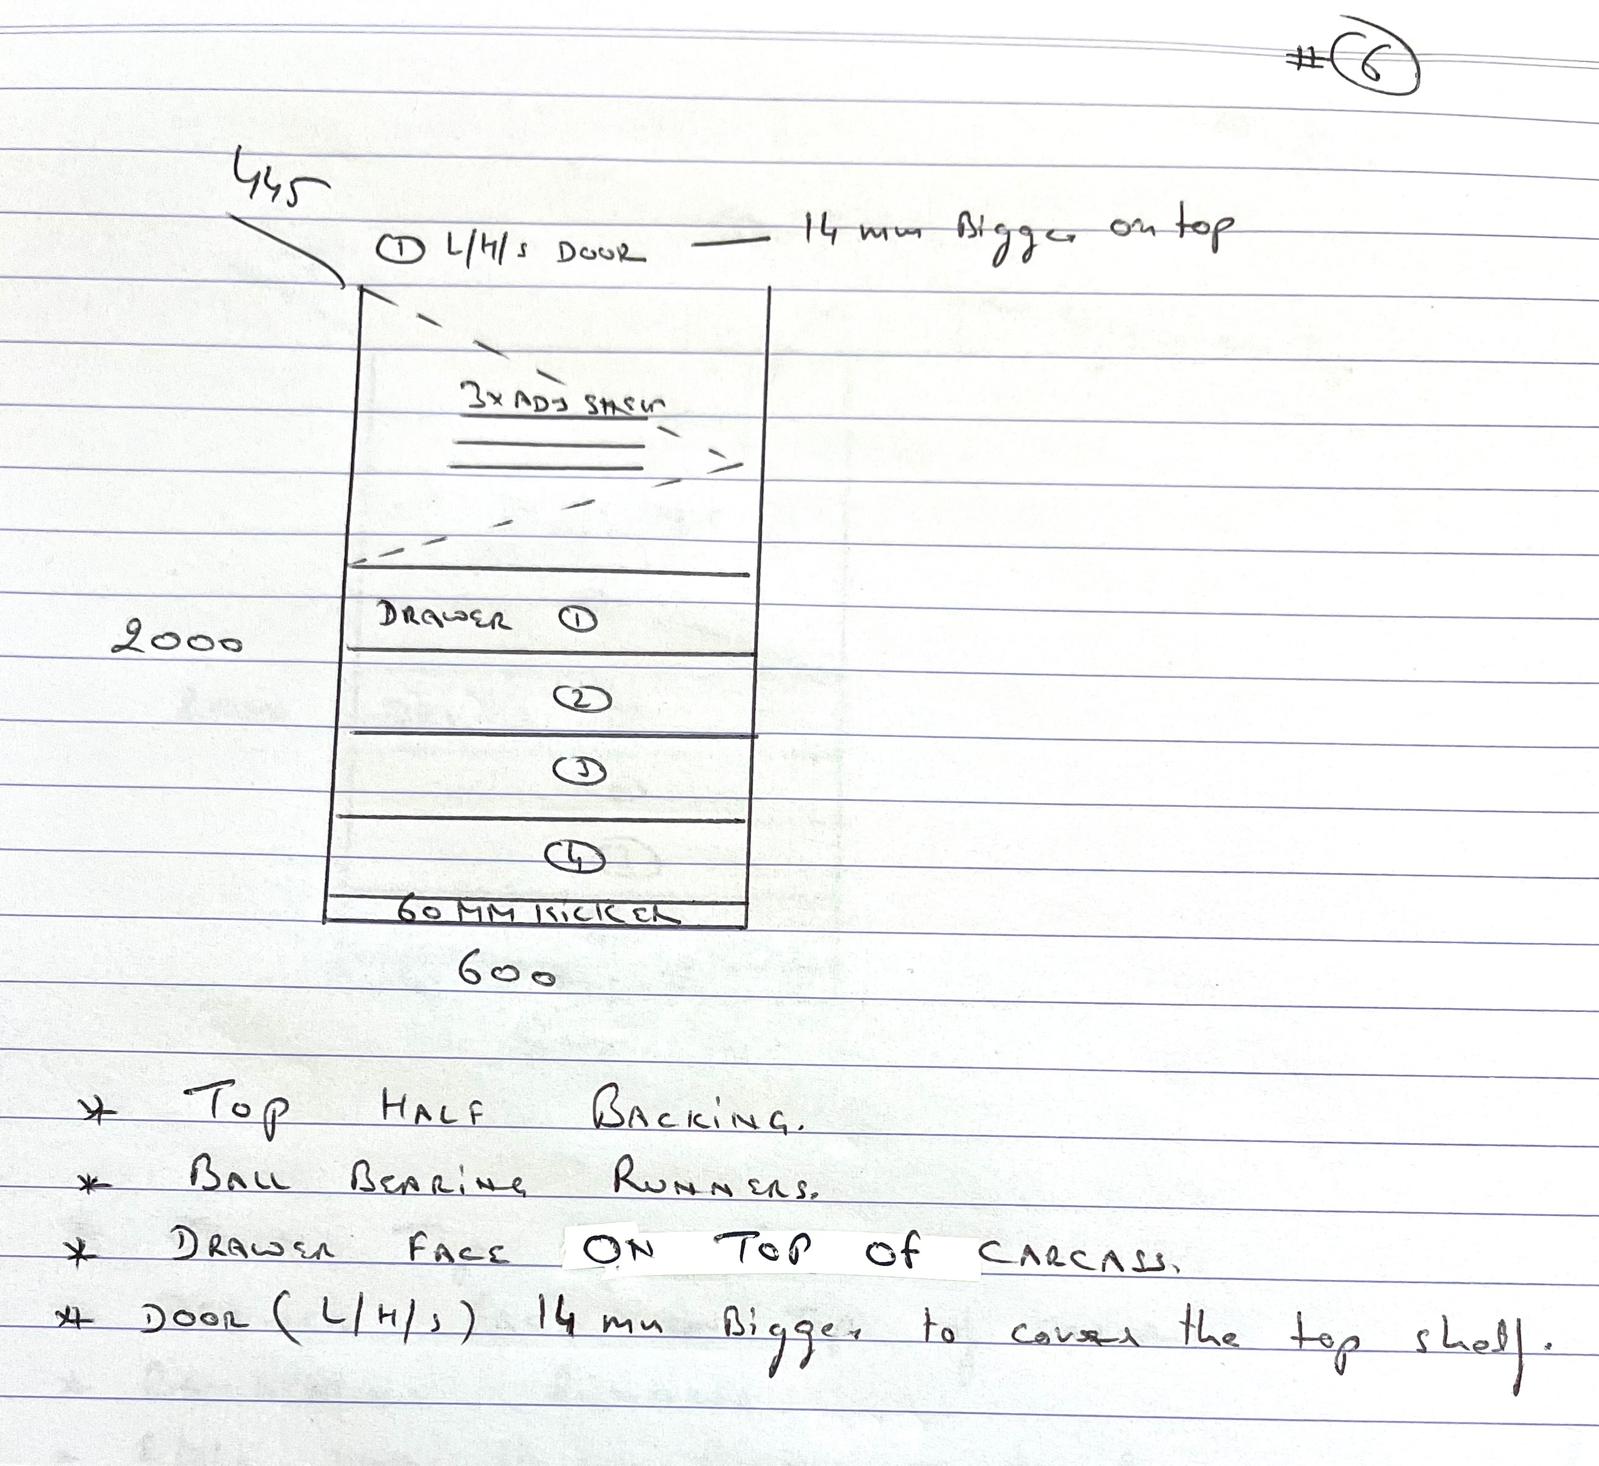 #6
445
① L/H/S DOOR — 14 mm Bigger on top
3x ADJ SHELV
DRAWER ①
2000
②
③
④
60 MM KICKER
600
* TOP HALF BACKING.
* BALL BEARING RUNNERS.
* DRAWER FACE ON TOP OF CARCASS.
* DOOR (L/H/S) 14 mm Bigger to cover the top shelf.